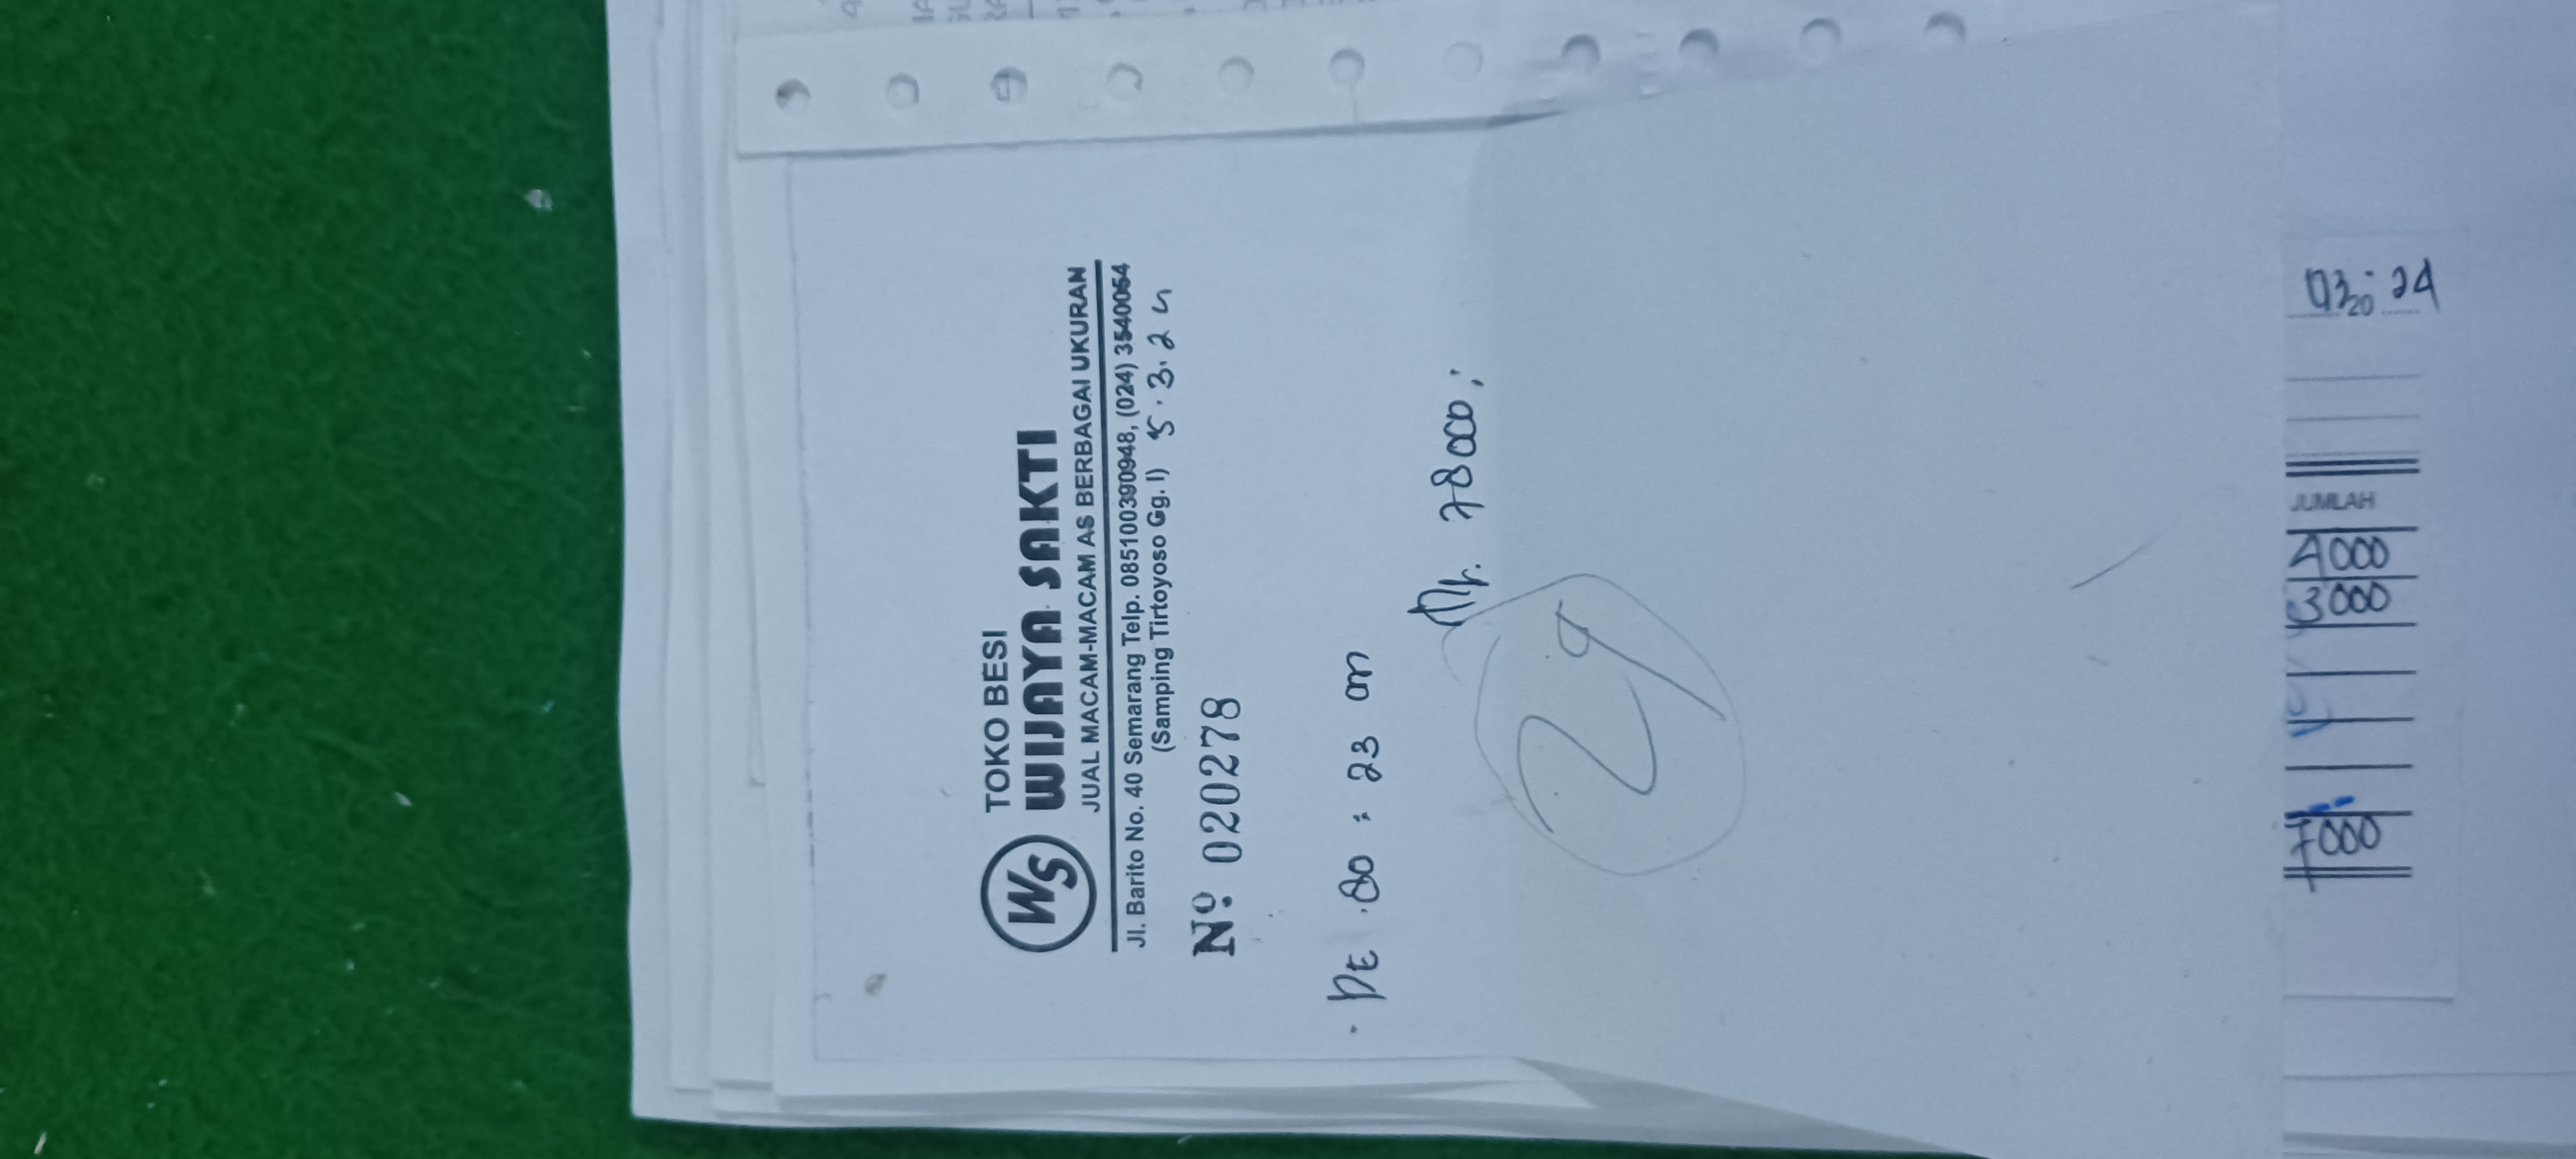 WS
TOKO BESI
WIJAYA SAKTI
JUAL MACAM-MACAM AS BERBAGAI UKURAN
Jl. Barito No. 40 Semarang Telp. 085100390948, (024) 3540064
(Samping Tirtoyoso Gg. I) 5.3.24
Nº 020278
80 = 23 cm
78000,
JUMLAH
20